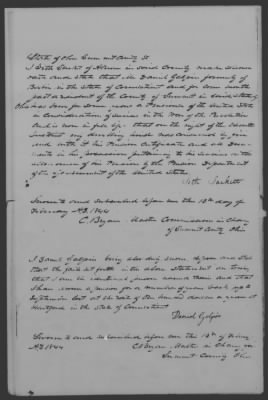 State of Ohio Summit County SS
I Seth Sackett of Akron in said County make solemn
oath and state that Mr Daniel Galpin formerly of
Berlin in the State of Connecticut and for some months
past a resident of the County of Summit in said State of
Ohio has been for some years a Pensioner of the United States
in consideration of services in the War of the Revolution
and is now in full life that on the night of the
last my dwelling house was consumed by fire
and with it his Pension Certificate and all Docu-
ments in his possession pertaining to his
of his Pension by the Pension Department
of the Government of the United States.
Seth Sackett
Sworn to and subscribed before me this 13th day of
February AD. 1844
C. Bryan Master Commissioner in Chancy
of Summit County Ohio
I Daniel Galpin being also duly sworn depose and say
that the facts set forth in the above statement are true,
that I am the identical person named and that
I have drawn a pension for a number of years back up to
September last at the rate of dollars a year at
Hartford in the State of Connecticut
Daniel Galpin
Sworn to and subscribed before me this 13th of
AD. 1844
C Bryan Master in Chancy
Summit County Ohio